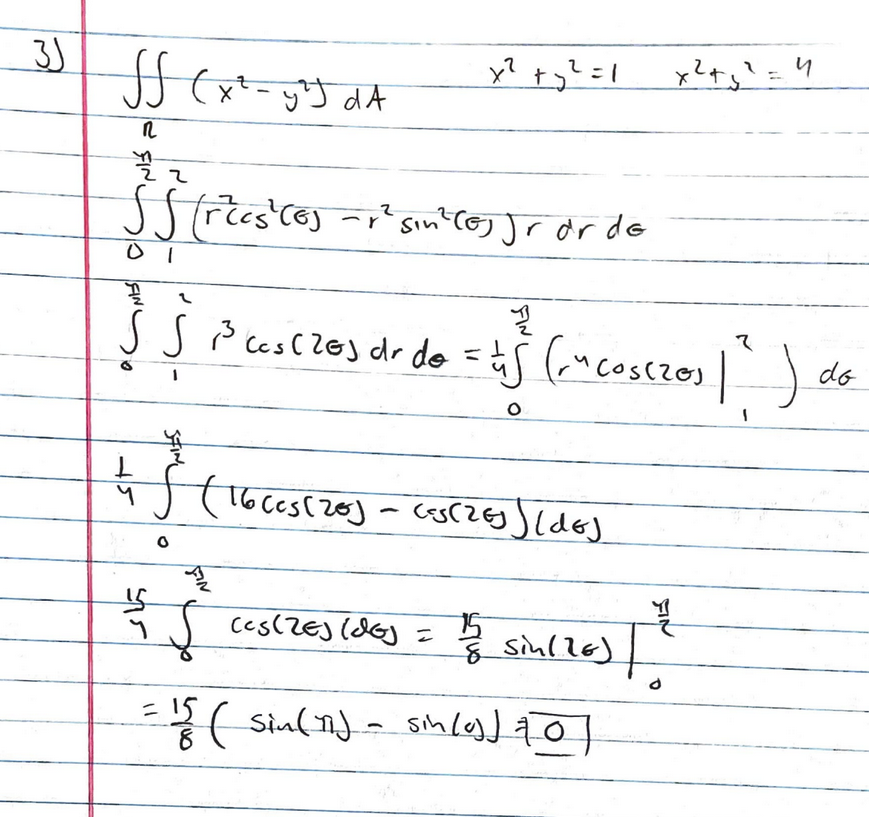 3) ∬_R (x² - y²) dA x² + y² = 1 x² + y² = 4
∫_0^{π/2} ∫_1^2 (r² cos²(θ) - r² sin²(θ)) r dr dθ
∫_0^{π/2} ∫_1^2 r³ cos(2θ) dr dθ = 1/4 ∫_0^{π/2} (r⁴ cos(2θ) |_1^2) dθ
1/4 ∫_0^{π/2} (16 cos(2θ) - cos(2θ)) (dθ)
15/4 ∫_0^{π/2} cos(2θ) (dθ) = 15/8 sin(2θ) |_0^{π/2}
= 15/8 ( sin(π) - sin(0)) = 0